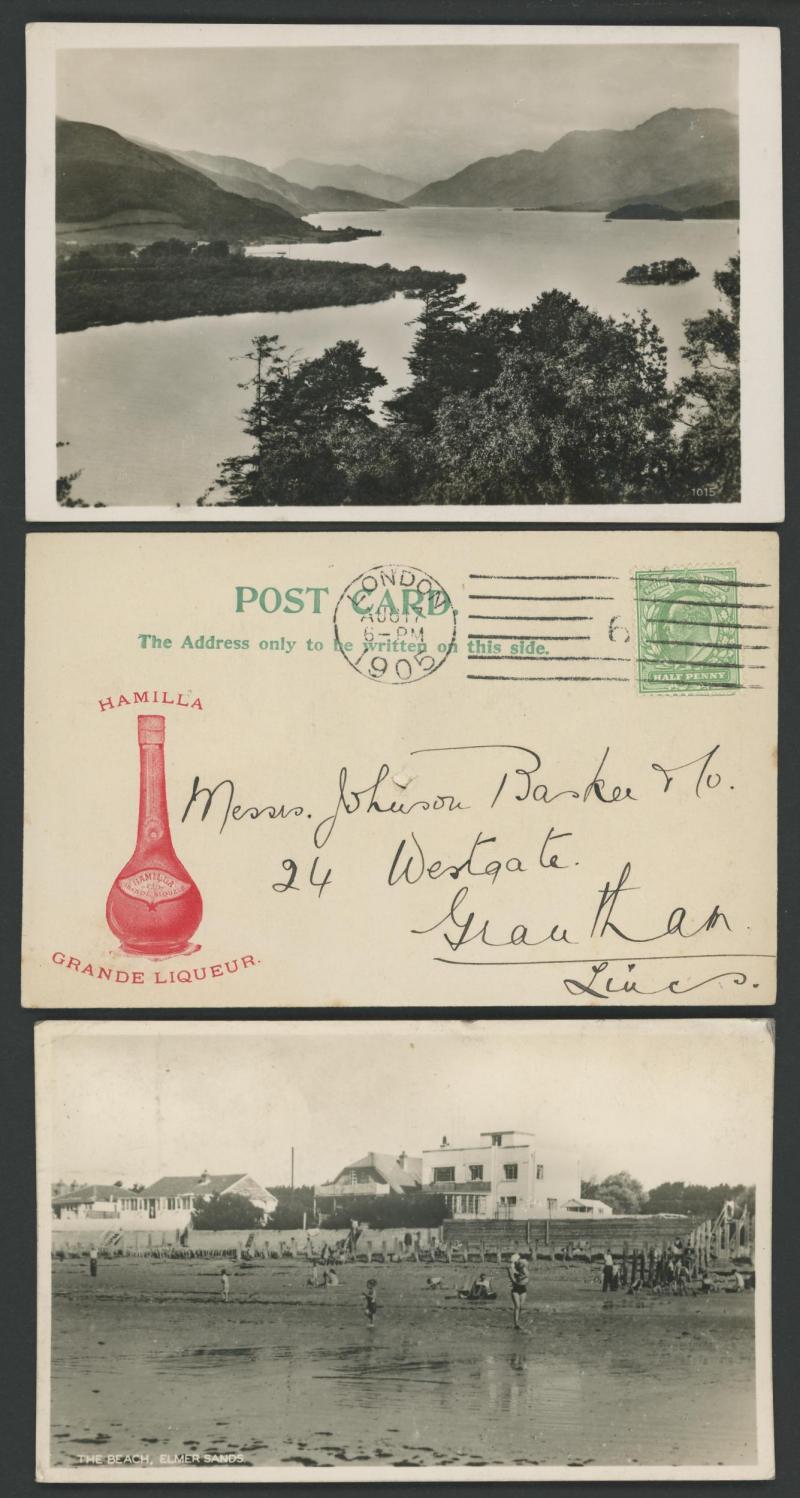 1015
POST CARD.
The Address only to be written on this side.
LONDON
AUG 17
6-PM
1905
6
HALF PENNY
HAMILLA
HAMILLA
GRANDE LIQUEUR.
Messrs. Johnson Basker & Co.
24 Westgate.
Grantham.
Lincs.
THE BEACH, ELMER SANDS